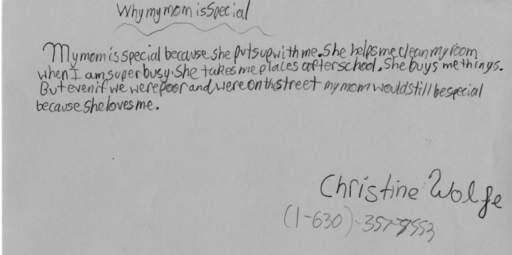 Why my mom is Special
My mom is special because she puts up with me. She helps me clean my room
when I am super busy. She takes me places after school. She buys me things.
But even if we were poor and were on the street my mom would still be special
because she loves me.
Christine Wolfe
(1-630)-357-9553